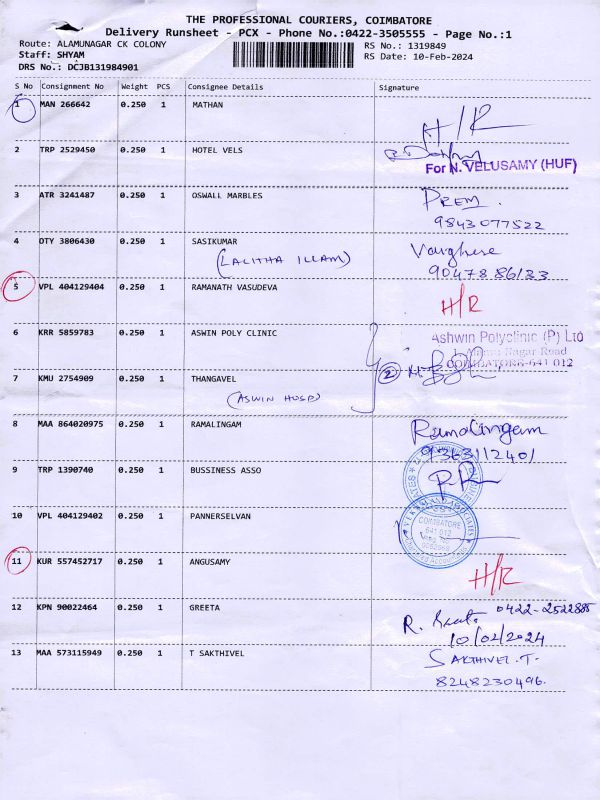 THE PROFESSIONAL COURIERS, COIMBATORE
Delivery Runsheet - PCX - Phone No.:0422-3505555 - Page No.:1
Route: ALAMUNAGAR CK COLONY
RS No.: 1319849
Staff: SHYAM
RS Date: 10-Feb-2024
DRS No.: DCJB131984901
S No Consignment No Weight PCS Consignee Details Signature
1 MAN 266642 0.250 1 MATHAN H/R
2 TRP 2529450 0.250 1 HOTEL VELS
For N. VELUSAMY (HUF)
3 ATR 3241487 0.250 1 OSWALL MARBLES PREM.
9843077522
4 OTY 3806430 0.250 1 SASIKUMAR Varghese
(LALITHA ILLAM) 9047886133
5 VPL 404129404 0.250 1 RAMANATH VASUDEVA H/R
6 KRR 5859783 0.250 1 ASWIN POLY CLINIC Ashwin Polyclinic (P) Ltd
Nagar Road
COIMBATORE-641 012
7 KMU 2754909 0.250 1 THANGAVEL 2
(ASWIN HOSP)
8 MAA 864020975 0.250 1 RAMALINGAM Ramalingam
9363112401
9 TRP 1390740 0.250 1 BUSSINESS ASSO
10 VPL 404129402 0.250 1 PANNERSELVAN
COIMBATORE
641 012
11 KUR 557452717 0.250 1 ANGUSAMY H/R
12 KPN 90022464 0.250 1 GREETA R. 0422-2522885
10/02/2024
13 MAA 573115949 0.250 1 T SAKTHIVEL SAKTHIVEL.T.
8248230496.